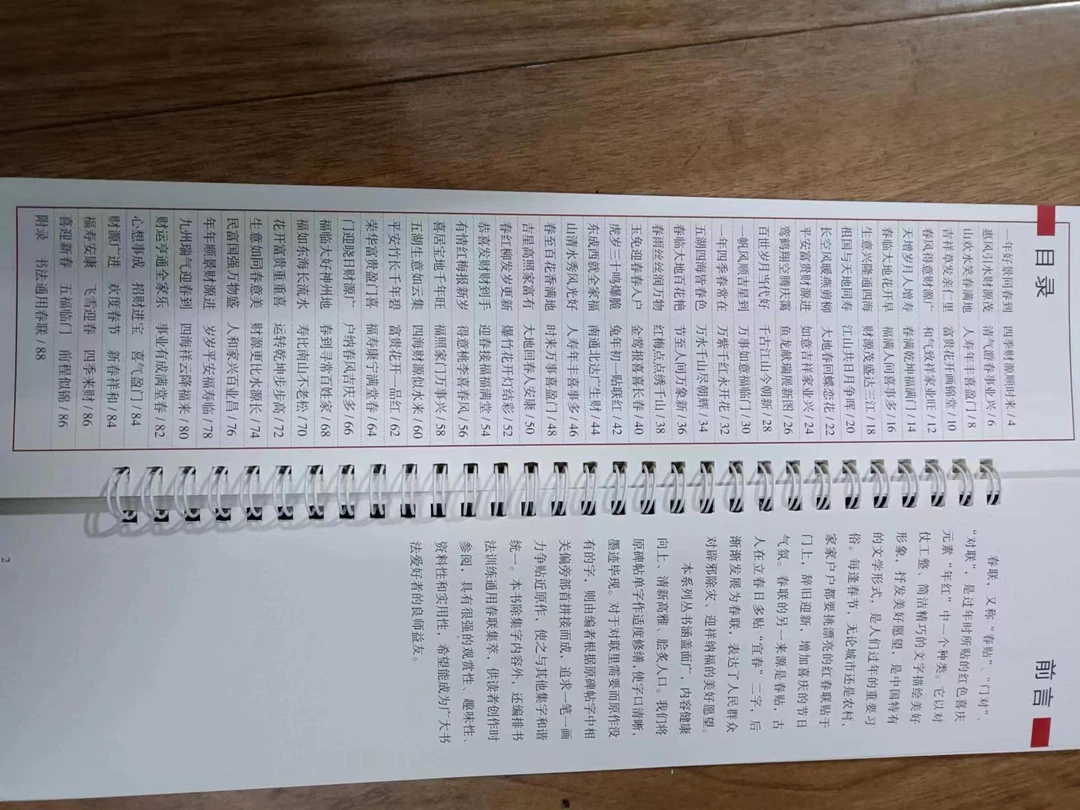 目录
一年好景同春到 四季财源顺时来 / 4
惠风引水财源茂 清气游春事业兴 / 6
山欢水笑春满地 人寿年丰喜盈门 / 8
吉祥草发亲仁里 富贵花开画锦堂 / 10
春风得意财源广 和气致祥家业旺 / 12
天增岁月人增寿 春满乾坤福满门 / 14
春临大地花开早 福满人间喜事多 / 16
生意兴隆通四海 财源茂盛达三江 / 18
祖国与天地同寿 江山共日月争晖 / 20
长空风暖燕明柳 大地春回蝶恋花 / 22
平安富贵财源进 如意吉祥家业兴 / 24
莺鹤翔空腾庆霭 鱼龙献瑞展新图 / 26
百世岁月当代好 千古江山今朝新 / 28
一帆风顺吉星到 万事如意福临门 / 30
一年四季春常在 万紫千红永开花 / 32
五湖四海皆春色 万水千山尽朝辉 / 34
春临大地百花艳 节至人间万象新 / 36
春雨丝丝润万物 红梅点点绣千山 / 38
玉兔迎春春人户 金莺报喜喜长春 / 40
虎岁三十鸣爆脆 兔年初一贴联红 / 42
东成西就全家福 南通北达广生财 / 44
山清水秀风光好 人寿年丰喜事多 / 46
春至百花香满地 时来万事喜盈门 / 48
吉星高照家富有 大地回春人安康 / 50
春红柳发岁更新 爆竹花开灯结彩 / 52
恭喜发财财到手 迎春接福福满堂 / 54
有情红梅报新岁 得意桃李喜春风 / 56
喜居宝地千年旺 福照家门万事兴 / 58
五湖生意如云集 四海财源似水来 / 60
平安竹长千年碧 富贵花开一品红 / 62
荣华富贵盈门喜 福寿康宁满堂春 / 64
门迎晓日财源广 户纳春风吉庆多 / 66
福临大好神州地 春到寻常百姓家 / 68
福如东海长流水 寿比南山不老松 / 70
花开富贵重重喜 运转乾坤步步高 / 72
生意如同春意美 财源更比水源长 / 74
民富国强万物盛 人和家兴百业昌 / 76
年年顺景财源进 岁岁平安福寿临 / 78
九州瑞气迎春到 四海祥云降福来 / 80
财运亨通全家乐 事业有成满堂春 / 82
心想事成 招财进宝 喜气盈门 / 84
财源广进 欢度春节 新春祥和 / 84
福寿安康 飞雪迎春 四季来财 / 86
喜迎新春 五福临门 前程似锦 / 86
附录 书法通用春联 / 88
前言
春联，又称“春贴”、“门对”、
“对联”，是过年时所贴的红色喜庆
元素“年红”中一个种类。它以对
仗工整、简洁精巧的文字描绘美好
形象，抒发美好愿望，是中国特有
的文学形式，是人们过年的重要习
俗。每逢春节，无论城市还是农村，
家家户户都要挑漂亮的红春联贴于
门上，辞旧迎新，增加喜庆的节日
气氛。春联的另一来源是春贴，古
人在立春日多贴“宜春”二字，后
渐渐发展为春联，表达了人民群众
对辟邪除灾、迎祥纳福的美好愿望。
本系列丛书涵盖面广，内容健康
向上、清新高雅、脍炙人口。我们将
原碑帖单字作适度修缮，使字口清晰，
墨迹毕现。对于对联里需要而原作没
有的字，则由编者根据原碑帖字中相
关偏旁部首拼接而成，追求一笔一画
力争贴近原作，使之与其他集字和谐
统一。本书除集字内容外，还编排书
法训练通用春联集萃，供读者创作时
参阅，具有很强的观赏性、趣味性、
资料性和实用性，希望能成为广大书
法爱好者的良师益友。
2